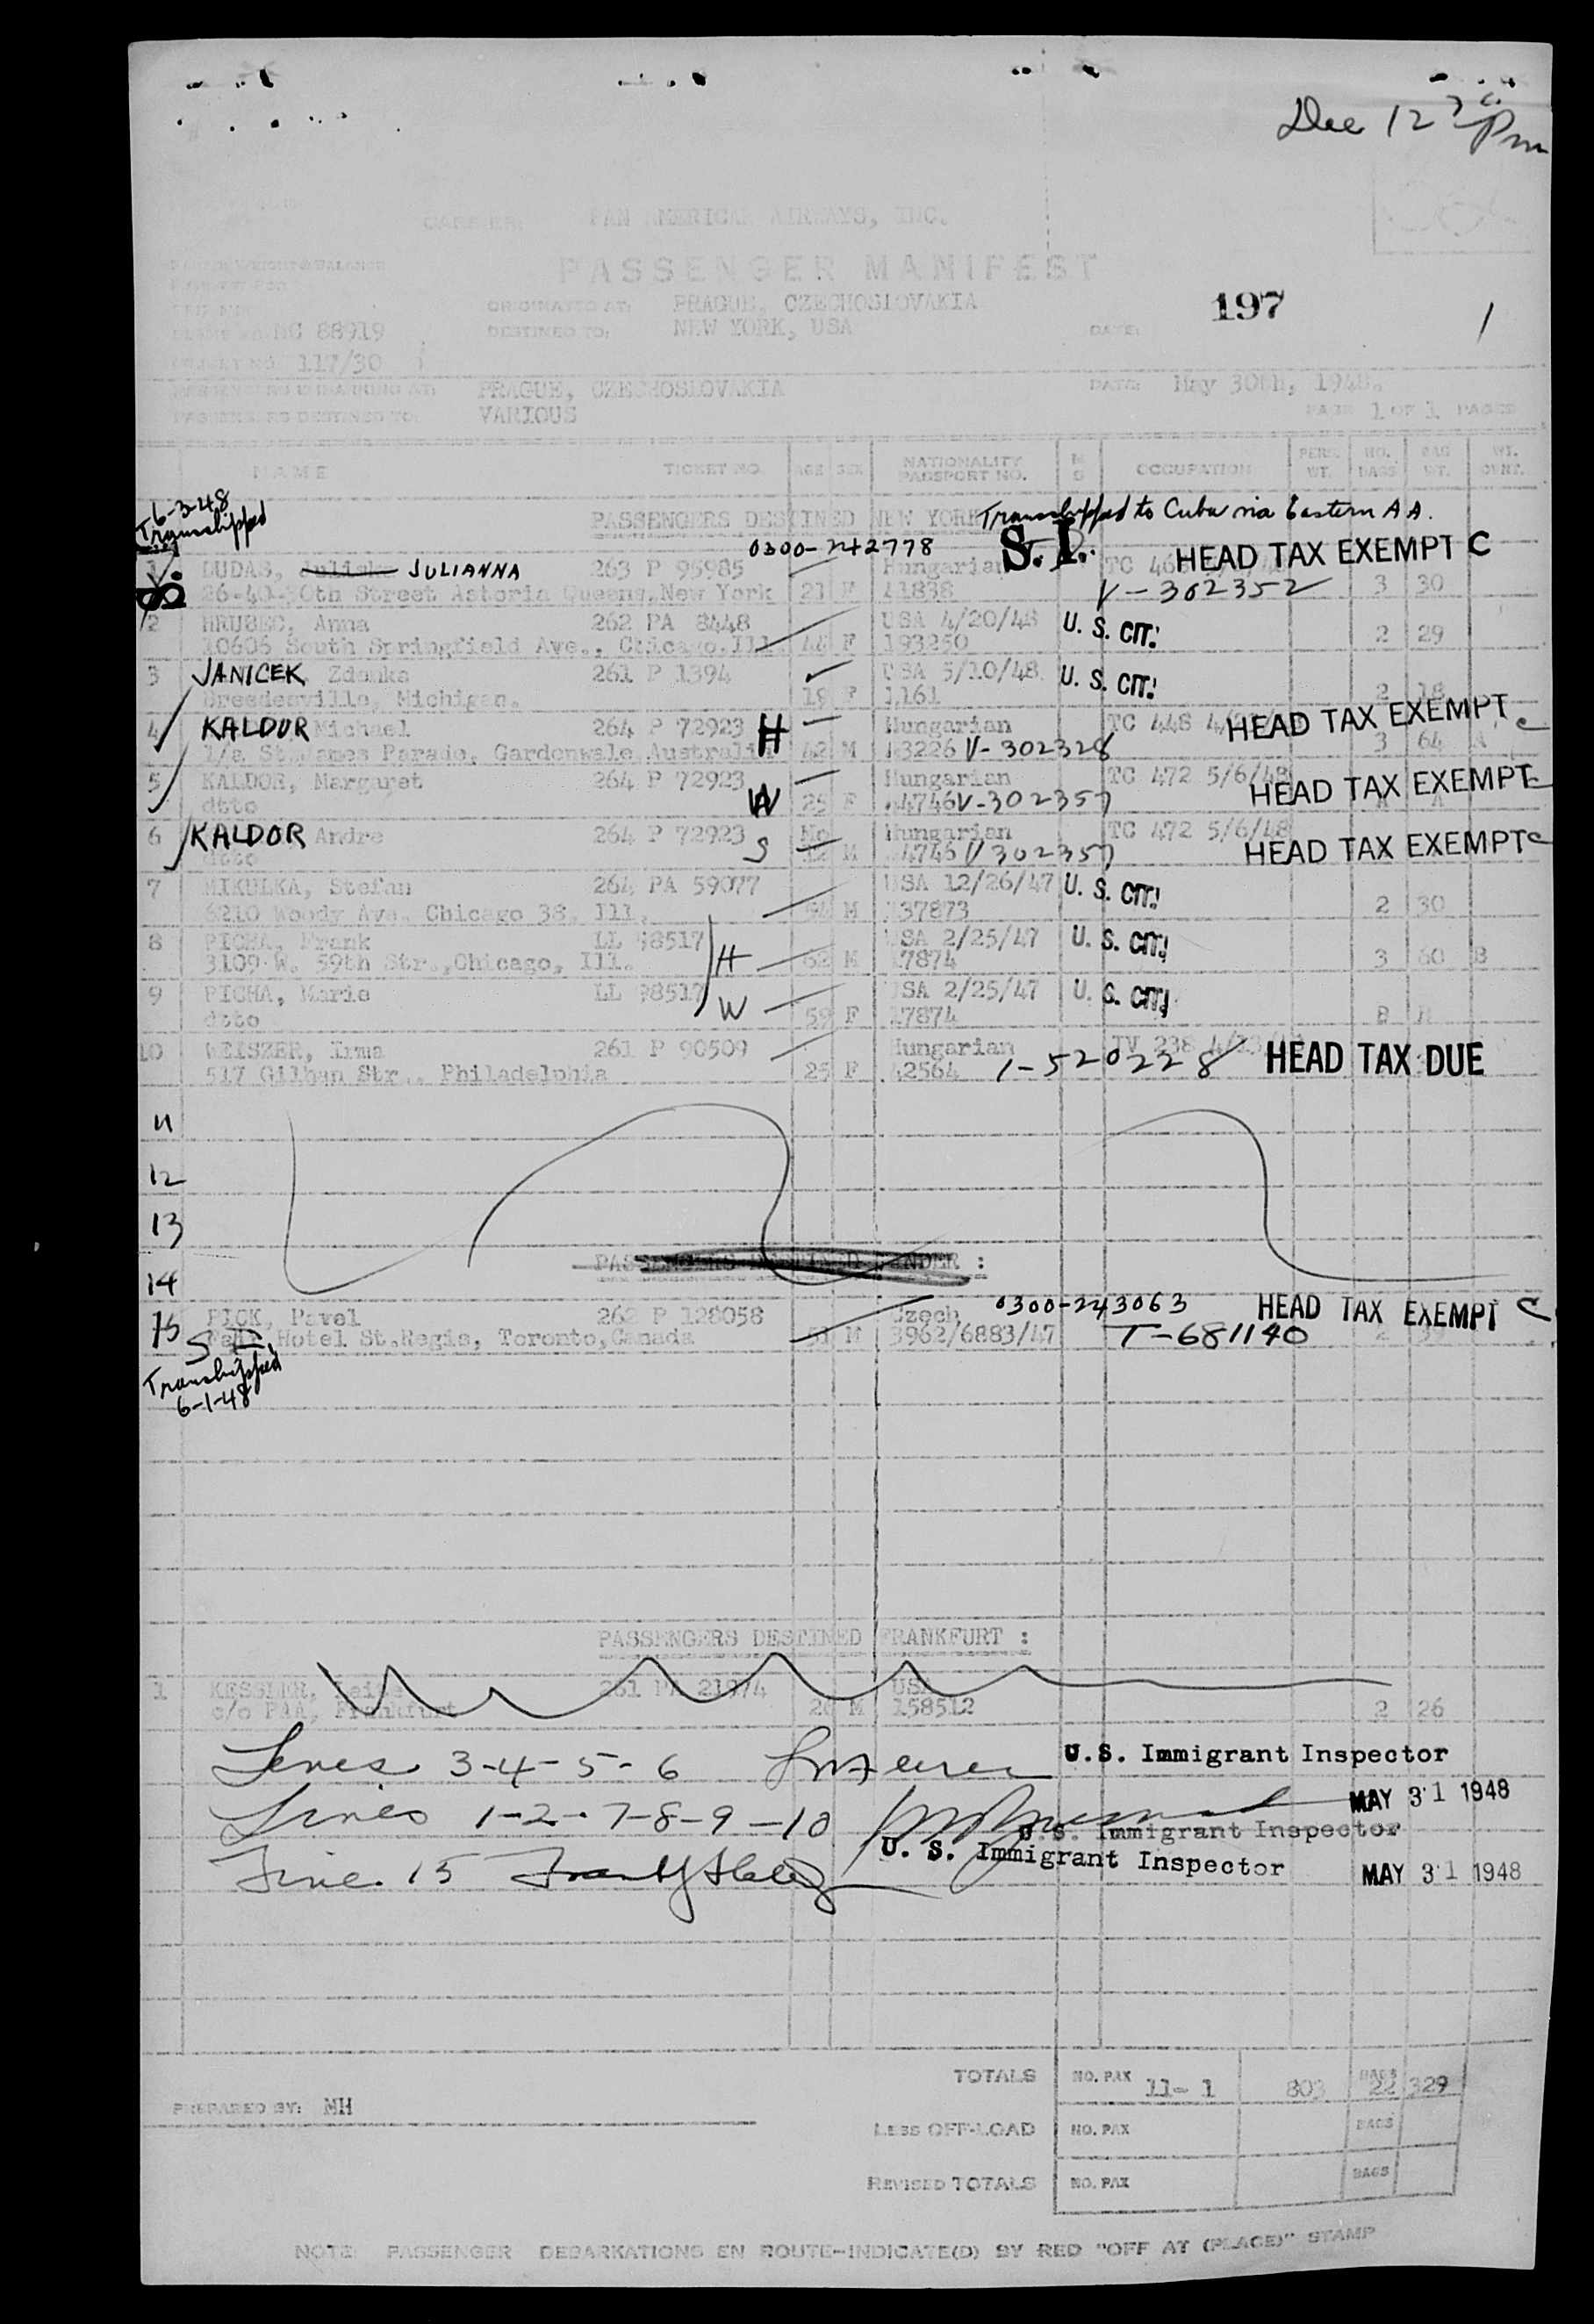 Dec 12 Pm
CARRIER: PAN AMERICAN AIRWAYS, INC.
PASSENGER MANIFEST
ORIGINATED AT: PRAGUE, CZECHOSLOVAKIA
197 1
NC 88919 DESTINED TO: NEW YORK, USA DATE:
117/30
PRAGUE, CZECHOSLOVAKIA DATE May 30th, 1948.
PASSENGERS DESTINED TO: VARIOUS PAGE 1 OF 1 PAGES
NAME TICKET NO. AGE SEX NATIONALITY PASSPORT NO. OCCUPATION PERS. WT. NO. BAGS BAG WT. WT. CENT.
6-3-48
Transhipped PASSENGERS DESTINED NEW YORK Transhipped to Cuba via Eastern A A.
0300-242778 S. I.
1 DUDAS, JULIANNA 263 P 95985 Hungarian TC HEAD TAX EXEMPT C
26-40-30th Street Astoria Queens, New York 21 F 41838 V-302352 3 30
2 HRUBEC, Anna 262 PA 8448 USA 4/20/48 U. S. CIT.
10606 South Springfield Ave., Chicago. Ill. 44 F 193250 2 29
3 JANICEK Zdenka 261 P 1394 USA 5/10/48 U. S. CIT.
Michigan. 19 F 1161 2 18
4 KALDOR Michael 264 P 72923 H Hungarian TC 448 HEAD TAX EXEMPT C
1/a St. James Parade, Gardenvale, Australia 42 M 43226 V-302328 3 64 A
5 KALDOR, Margaret 264 P 72923 W Hungarian TC 472 5/6/48 HEAD TAX EXEMPT C
dtto 25 F 44746 V-302357
6 KALDOR Andre 264 P 72923 S Mo Hungarian TC 472 5/6/48 HEAD TAX EXEMPT C
dtto M 44746 V 302357
7 MIKULKA, Stefan 264 PA 59077 USA 12/26/47 U. S. CIT.
6210 Woody Ave. Chicago 38, Ill. M 137873 2 30
8 PICHA, Frank LL 98517 H USA 2/25/47 U. S. CIT.
3109 W. 59th Str., Chicago, Ill. 62 M 17874 3 60 B
9 PICHA, Marie LL 98517 W USA 2/25/47 U. S. CIT.
dtto 59 F 17874 B B
10 WEISZER, Irma 261 P 90509 Hungarian TV 238 HEAD TAX DUE
517 Gilhan Str., Philadelphia 25 F 42564 1-520228
11
12
13
PASSENGERS DESTINED GANDER :
14
15 PICK, Pavel 262 P 128058 Czech 0300-243063 HEAD TAX EXEMPT C
S. I. Hotel St. Regis, Toronto, Canada 51 M 3962/6883/47 T-681140
Transhipped
6-1-48
PASSENGERS DESTINED FRANKFURT :
1 KESSLER, 261 PA 21974 USA
c/o PAA, Frankfurt 26 M 158512 2 26
Lines 3-4-5-6 U.S. Immigrant Inspector
Lines 1-2-7-8-9-10 MAY 31 1948
U.S. Immigrant Inspector
U. S. Immigrant Inspector
Line 15 MAY 31 1948
TOTALS NO. PAX 11-1 803 BAGS 22 329
PREPARED BY: MH
LESS OFF-LOAD NO. PAX BAGS
REVISED TOTALS NO. PAX BAGS
NOTE: PASSENGER DEBARKATIONS EN ROUTE-INDICATE(D) BY RED "OFF AT (PLACE)" STAMP